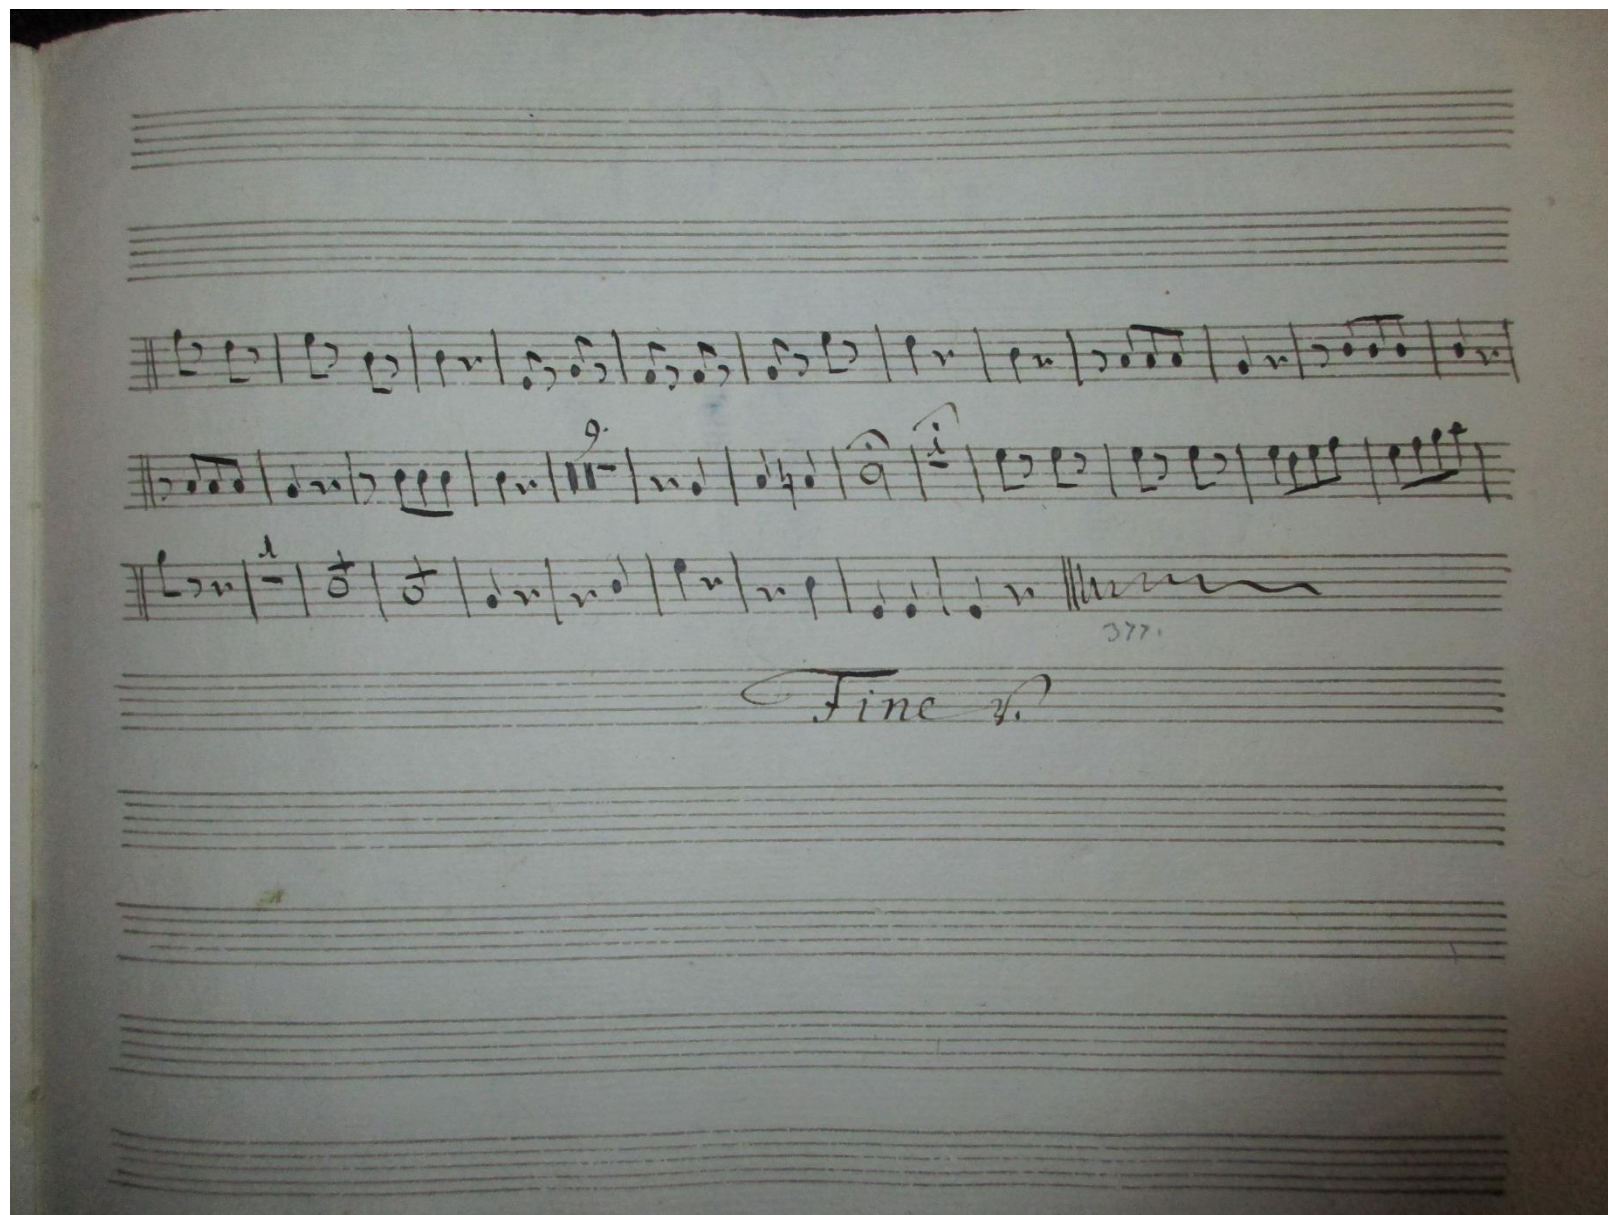 9.
1
1
377.
Fine